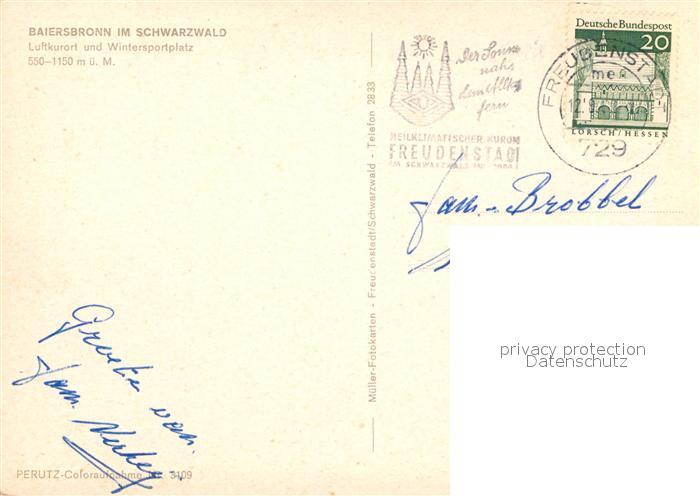 BAIERSBRONN IM SCHWARZWALD
Luftkurort und Wintersportplatz
550–1150 m ü. M.
Der Sonne
nahs
dem Alltag
fern
HEILKLIMATISCHER KURORT
FREUDENSTADT
IM SCHWARZWALD
Deutsche Bundespost
20
LORSCH/HESSEN
FREUDENST
me
12.
729
Fam. Brobbel
Müller-Fotokarten - Freudenstadt/Schwarzwald - Telefon 2833
privacy protection
Datenschutz
Groeten van
fam.
PERUTZ-Coloraufnahme Nr. 3109